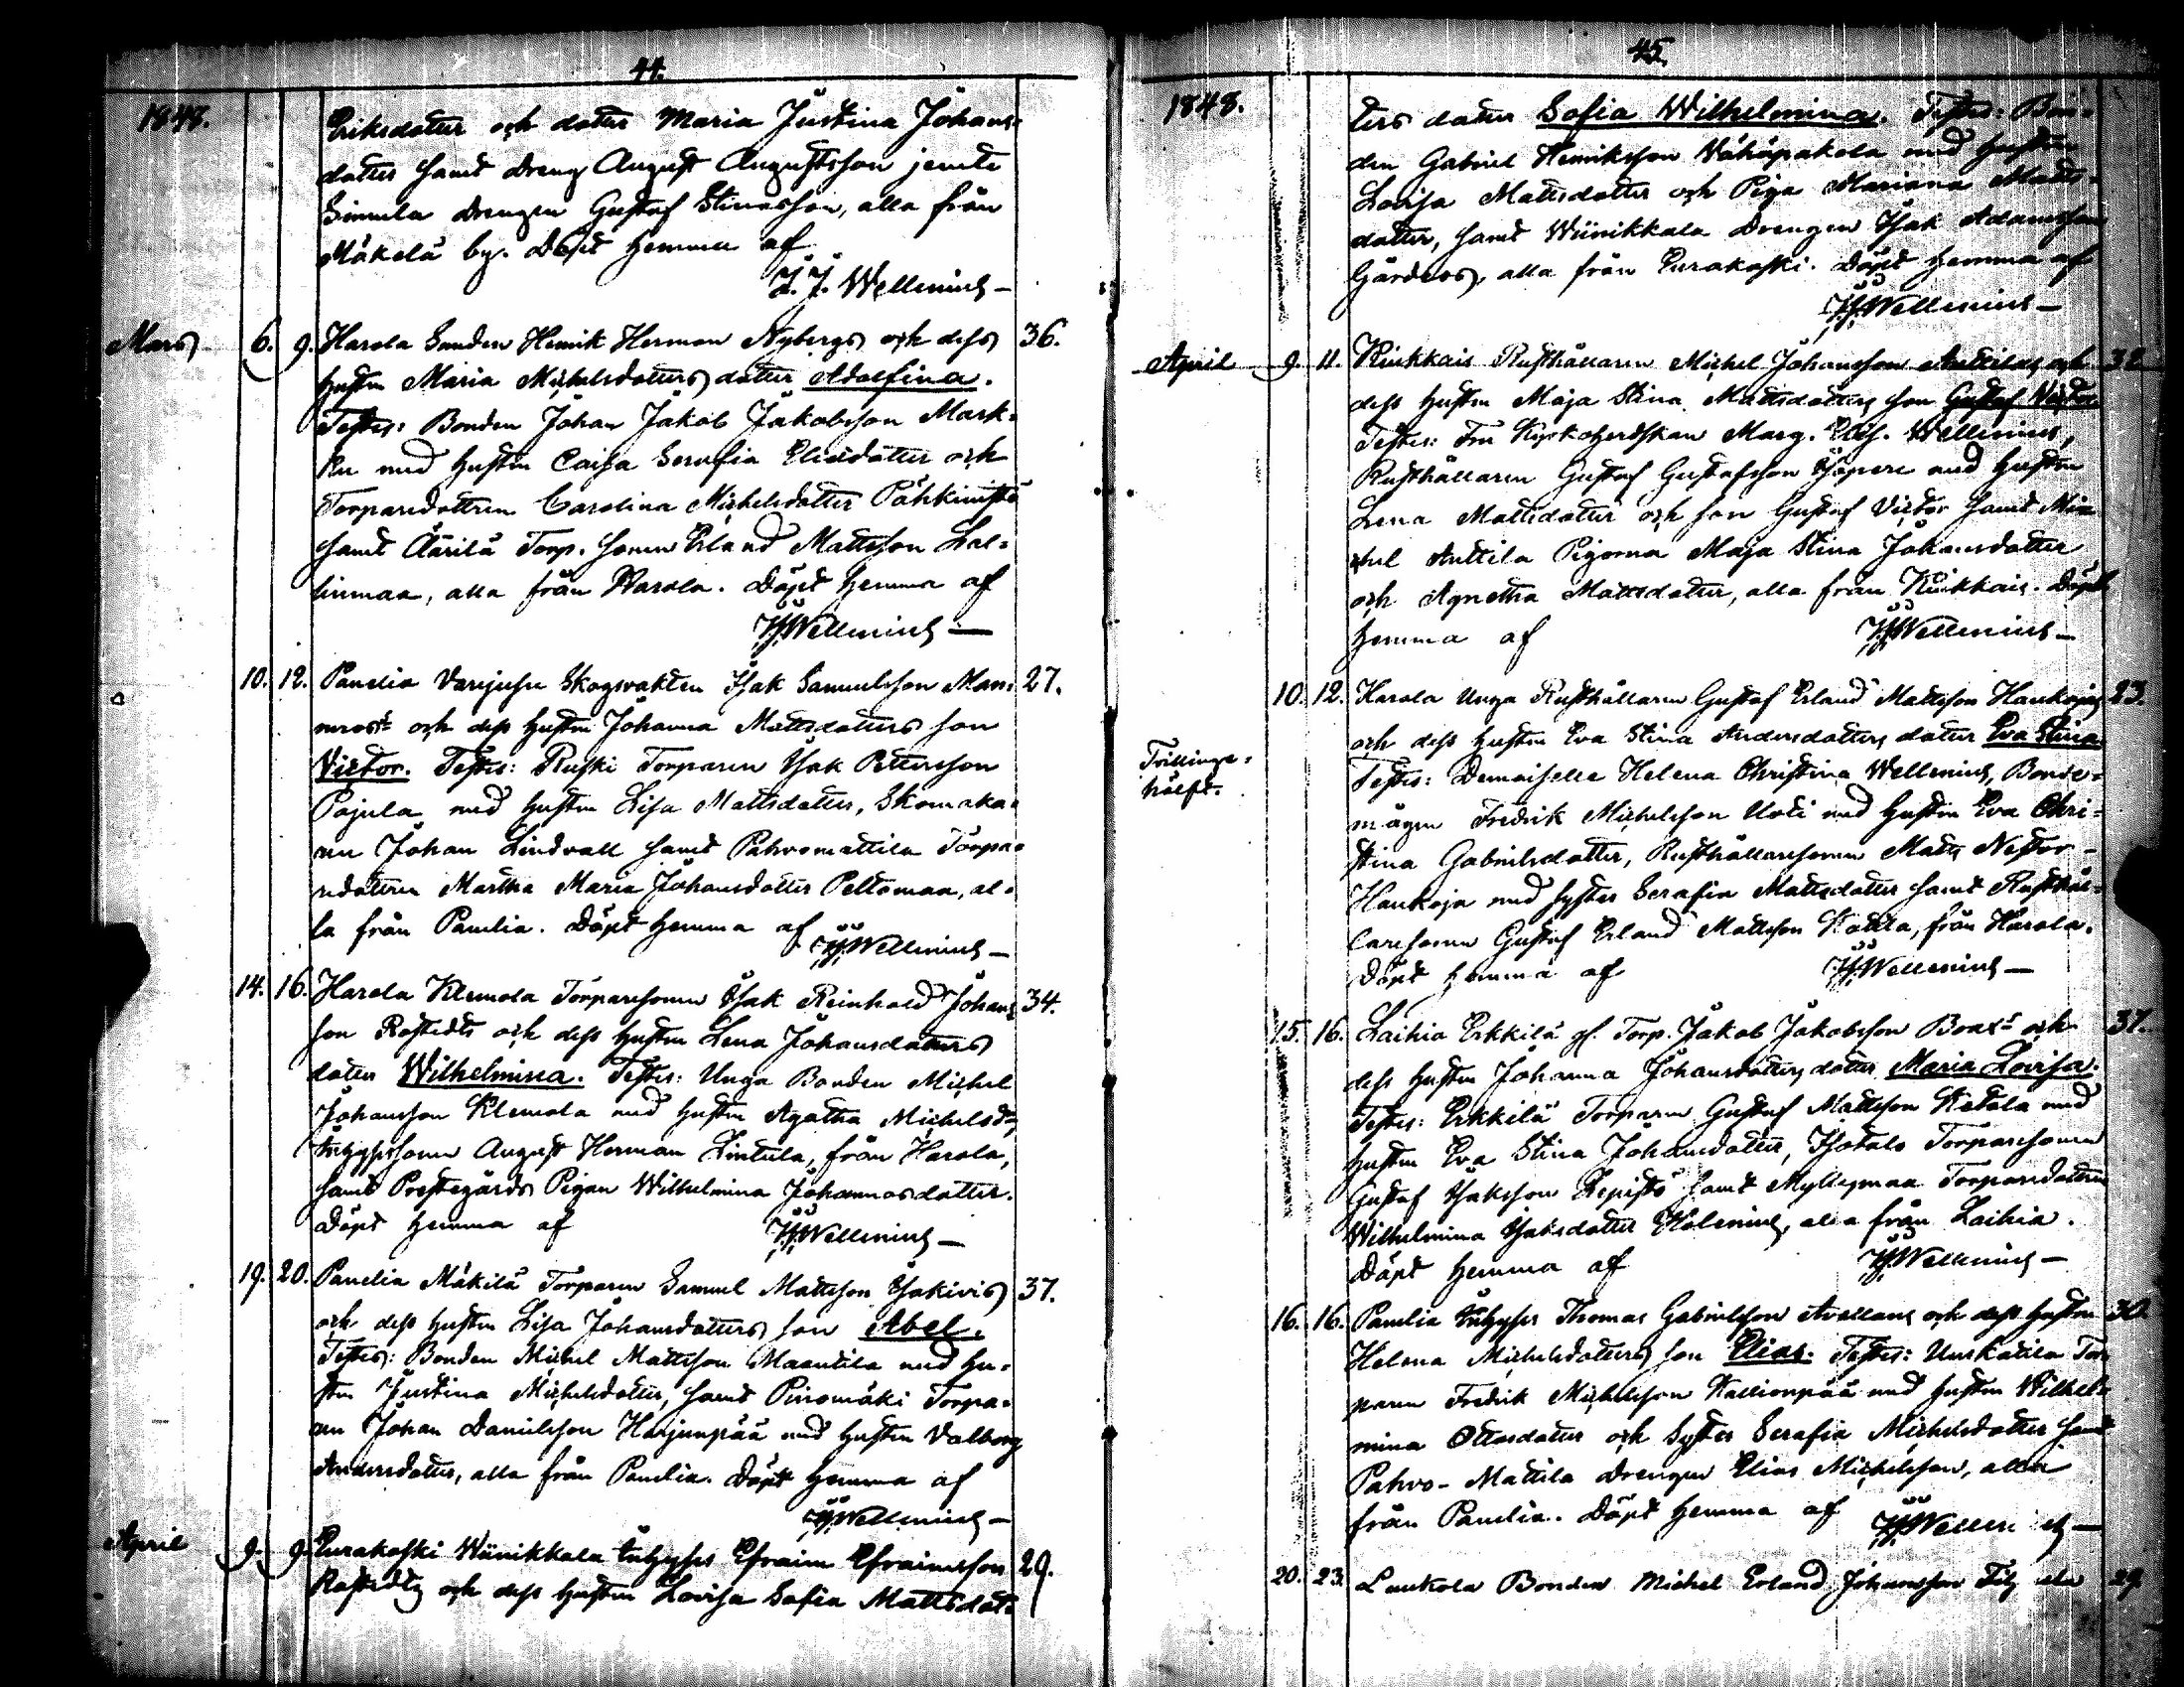 44.
1848.
Eriksdotter och dotter Maria Justina Johans-
dotter samt Dreng August Augustsson jemte
Simula Drengen Gustaf Stinasson, alla från
Mäkelä by. Döpt hemma af
J. J. Wellenius
Mars 6. 9. Harola Sunden Henrik Herman Nybergs och dess 36.
hustru Maria Michelsdotters dotter Adolfina.
Testes: Bonden Johan Jakob Jakobsson Mark-
ku med hustru Caisa Serafia Eliedotter och
Torparedottren Carolina Michelsdotter Pähkinistö
samt Äärilä Torp. sonen Erland Mattsson Lal-
linmaa, alla från Harola. Döpt hemma af
JJWellenius
10. 12. Panelia Varjusse Skogvakten Isak Samuelsson Man- 27.
nrost och dess hustru Johanna Mattsdotters son
Victor. Testes: Ruski Torparen Isak Pettersson
Pajula med hustru Lisa Mattsdotter, Skomaka-
ren Johan Lindvall samt Pahvomattila Torpa-
redottren Martha Maria Johansdotter Peltomaa, al-
la från Panelia. Döpt hemma af
JJWellenius
14. 16. Harola Klemola Torparesonen Isak Reinhold Johans 34.
son Rostedts och dess hustru Lena Johansdotters
dotter Wilhelmina. Testes: Unga Bonden Michel
Johansson Klemola med hustru Agatha Michelsdr,
Inhysessonen August Herman Lintula, från Harola,
samt Prestegårds Pigan Wilhelmina Johannesdotter.
Döpt hemma af JJWellenius
19. 20. Panelia Mäkilä Torparen Samuel Mattsson Isakivis 37.
och dess hustru Lisa Johansdotters son Abel.
Testes: Bonden Michel Mattsson Maantila med hu-
stru Justina Michelsdotter, samt Pinomäki Torpa-
ren Johan Danielsson Harjunpää med hustru Valborg
Andersdotter, alla från Panelia. Döpt hemma af
JJWellenius
April 9. 9. Eurakoski Wiinikkala Inhyses Efraim Efraimsson 29.
Rostedts och dess hustru Lovisa Sofia Mattsdot-
45.
1848.
ters dotter Sofia Wilhelmina. Testes: Bon-
den Gabriel Henriksson Vähäpakola med hustru
Lovisa Mattsdotter och Piga Mariana Matts-
dotter, samt Wiinikkala Drengen Isak Adamsson
Gårdeos, alla från Eurakoski. Döpt hemma af
JJWellenius
April 9. 11. Kiukkais Rusthållaren Michel Johansson Anttilas och 32
dess hustru Maja Stina Mattsdotters son Gustaf Victor
Testes: Fru Kyrkoherdskan Marg. Elis. Wellenius,
Rusthållaren Gustaf Gustafsson Isopere med hustru
Lena Mattsdotter och son Gustaf Victor samt Mi-
chel Anttila Pigorna Maja Stina Johansdotter
och Agnetha Mattsdotter, alla från Kiukkais. Döpt
hemma af JJWellenius
10. 12. Harola Unga Rusthållaren Gustaf Erland Mattsson Haukojas 23.
och dess hustru Eva Stina Andersdotters dotter Eva Stina
Tvillinge-
hälft.
Testes: Demoiselle Helena Christina Wellenius, Bonde-
mågen Fredrik Michelsson Uoti med hustru Eva Chri-
stina Gabrielsdotter, Rusthållaresonen Matts Nestor
Haukoja med syster Serafia Mattsdotter samt Rusthål-
laresonen Gustaf Erland Mattsson Kattila, från Harola.
Döpt hemma af JJWellenius
15. 16. Laihia Erkkilä gl. Torp. Jakob Jakobsson Boxr och 37.
dess hustru Johanna Johansdotters dotter Maria Lovisa.
Testes: Erkkilä Torparen Gustaf Mattsson Ketola med
hustru Eva Stina Johansdotter, Isotalo Torparesonen
Gustaf Isaksson Lepistö samt Myllymaa Torparedottren
Wilhelmina Isaksdotter Holenius, alla från Laihia.
Döpt hemma af JJWellenius
16. 16. Panelia Inhyses Thomas Gabrielsson Avellans och dess hustru 30.
Helena Michelsdotters son Elias. Testes: Uuskatila Tor-
paren Fredrik Michelsson Kallionpää med hustru Wilhel-
mina Ottosdotter och syster Serafia Michelsdotter samt
Pahvo-Mattila Drengen Elias Michelsson, alla
från Panelia. Döpt hemma af JJWellenius
20. 23. Laukola Bonden Michel Erland Johansson 29.